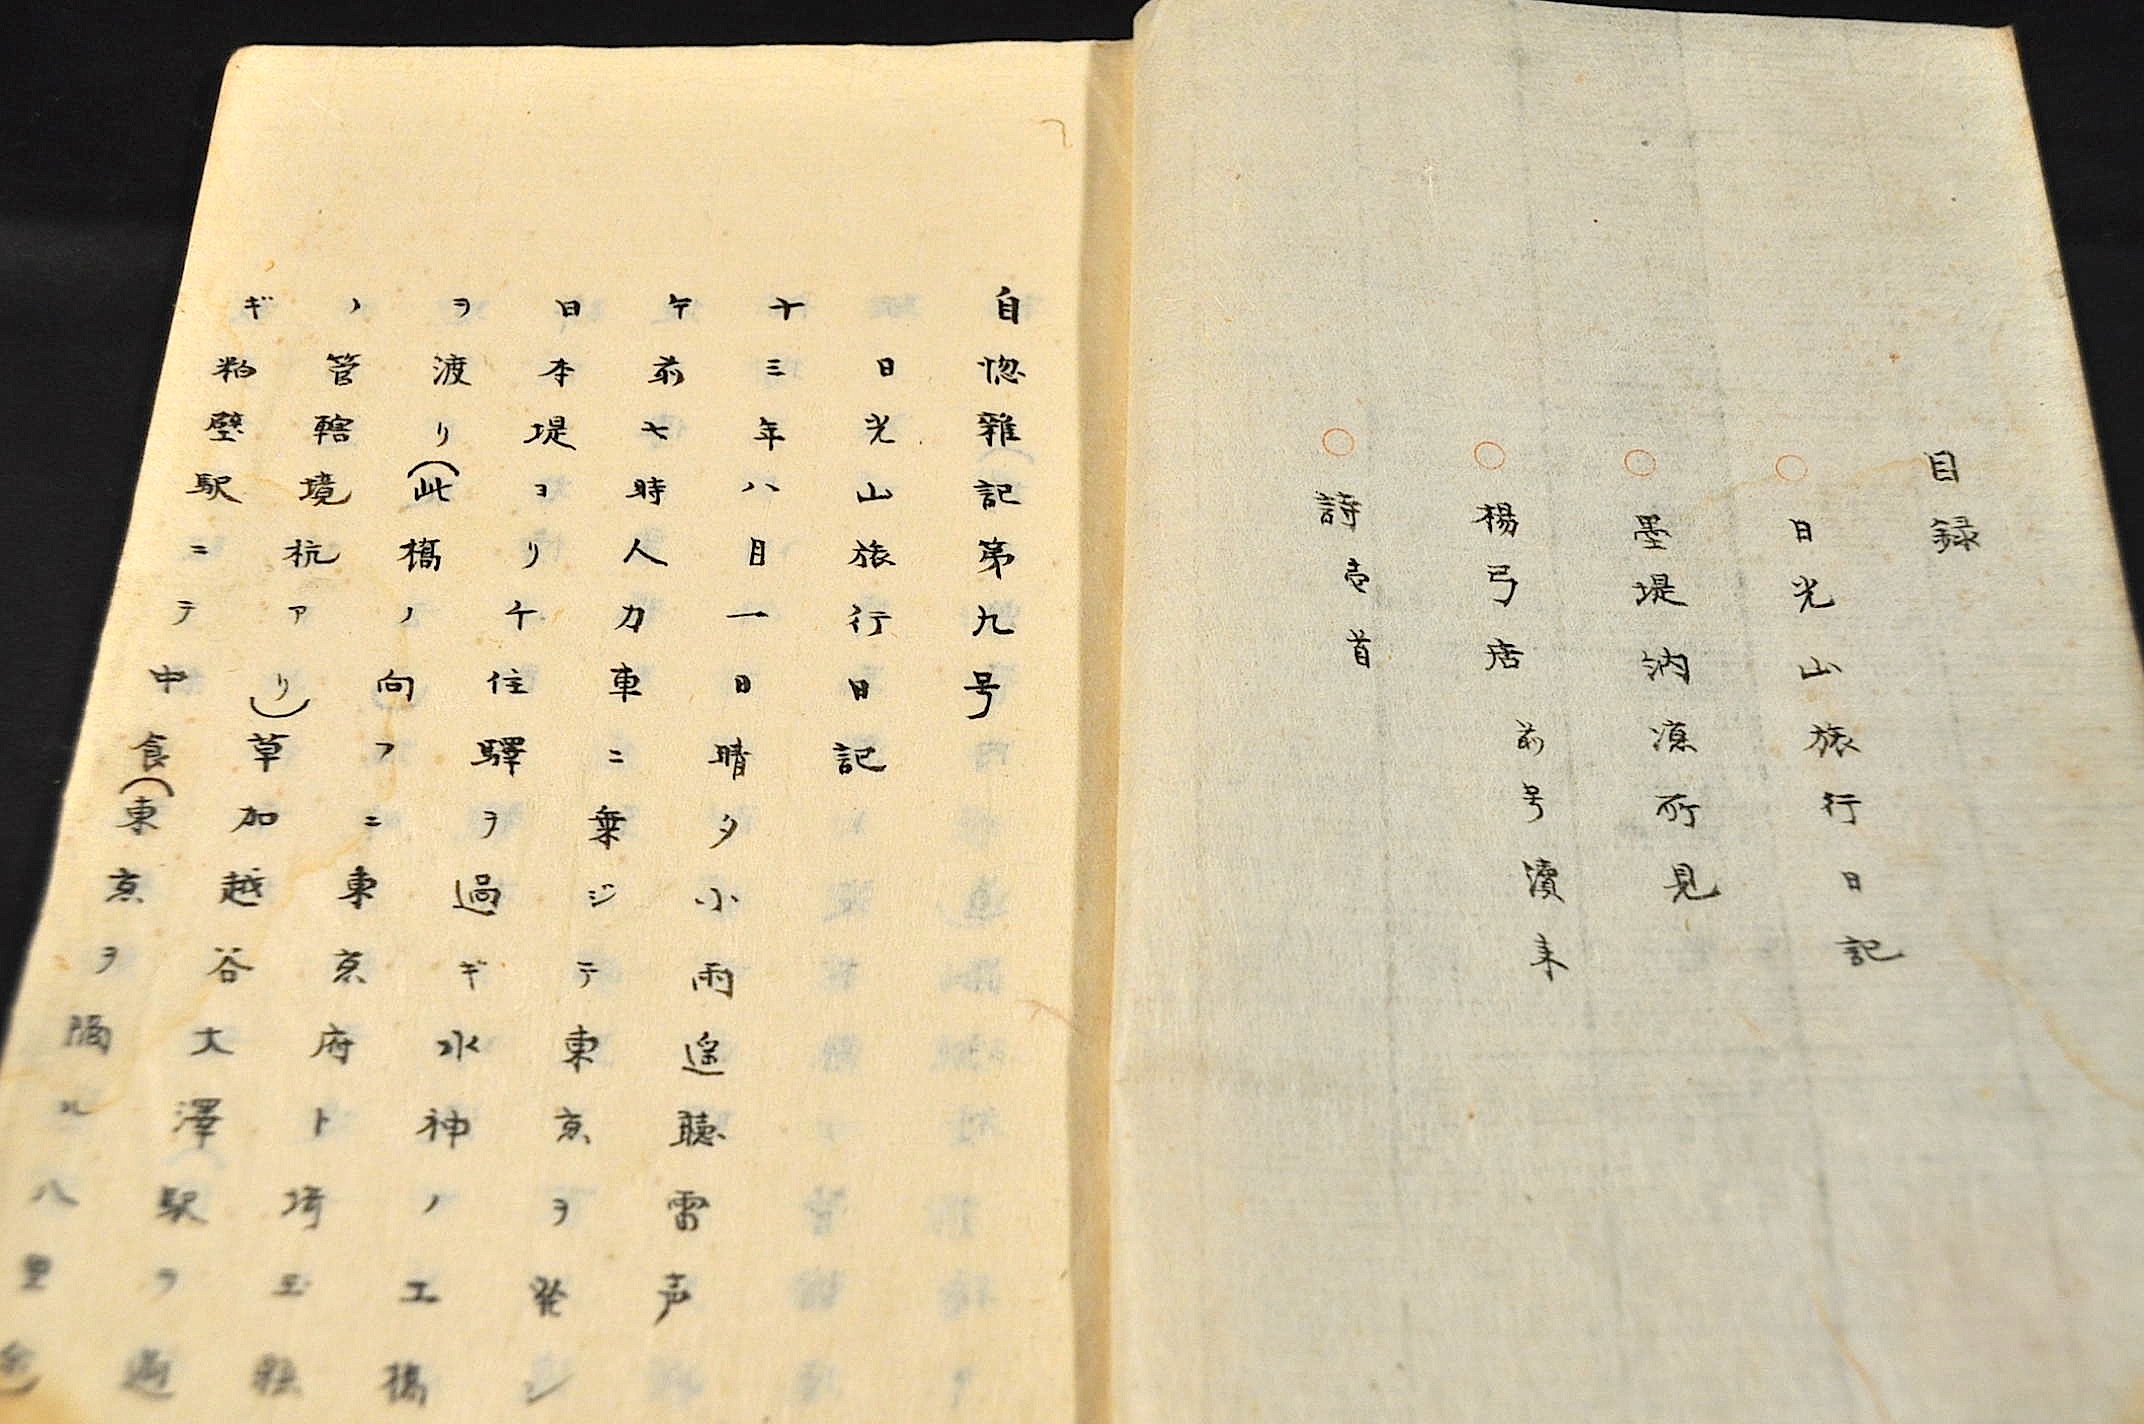 目録
○日光山旅行日記
○墨堤納凉所見
○楊弓店 前号瀆来
○詩壱首
自惚雑記第九号
日光山旅行日記
十三年八月一日晴夕小雨遥聴雷声
午前七時人力車ニ乗ジテ東京ヲ発シ
日本堤ヨリ千住驛ヲ過ギ水神ノ工橋
ヲ渡リ(此橋ノ向フニ東京府ト埼玉縣
ノ管轄境杭アリ)草加越谷大澤駅ヲ過
ギ粕壁駅ニテ中食(東京ヲ隔ル八里